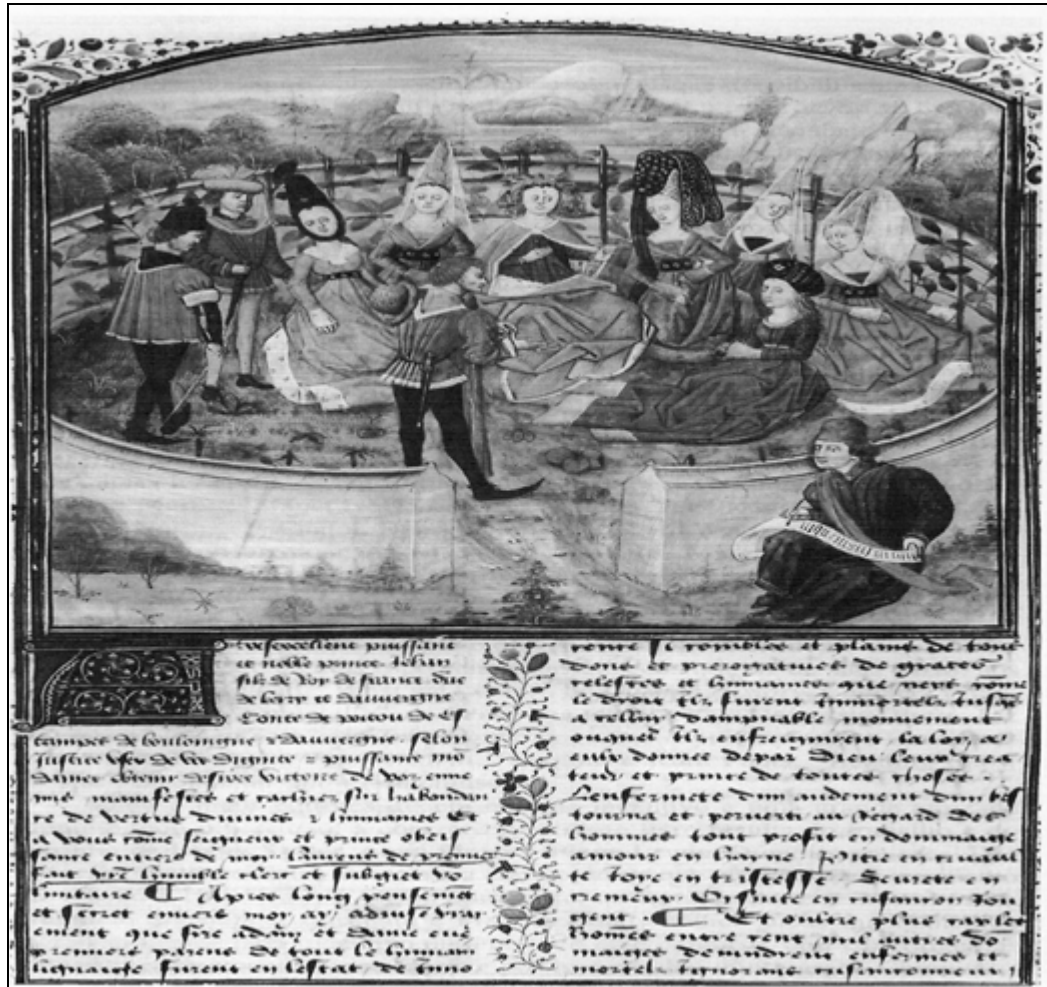 Tresexcellent puissant
et noble prince Jehan
filz de Roy de france duc
de berry et dauuergne
Conte de poitou de Es
tampes de bouloingne & dauuergne. selon
Justice & puissance
victoire de voz enne
mis manifestes et cachiez sur habondan
ce de vertus diuines & humaines Et
a vous come seigneur et prince obeis
sance entiere de moy laurens de premier
fait vre humble clerc et subgiet vo
luntaire Apres long pensement
et secret enuers moy ay aduise vray
ement que sire adam et dame eue
premiers parens de tout le humain
lignaige furent en lestat de Inno
cence si comblez et plains de tous
dons et prerogatiues de graces
celestes et humaines que
le droit Ilz furent Immortelz Iusqe
a cellui dampnable mouuement
ouquel Ilz enfreignirent la loy a
eulx donnee depar Dieu leur crea
teur et prince de toutes choses
Lenfermete
tourna et peruerti au Regard des
hommes tout profit en dommaige
amour en hayne Pitie en cruaul
te Joye en tristesse Seurete en
cremeur en cusancon ron
gent. Et oultre plus car les
homes entre cent mil autres do
maiges deuindrent enfermes et
mortelz Ignorans cusanconneux